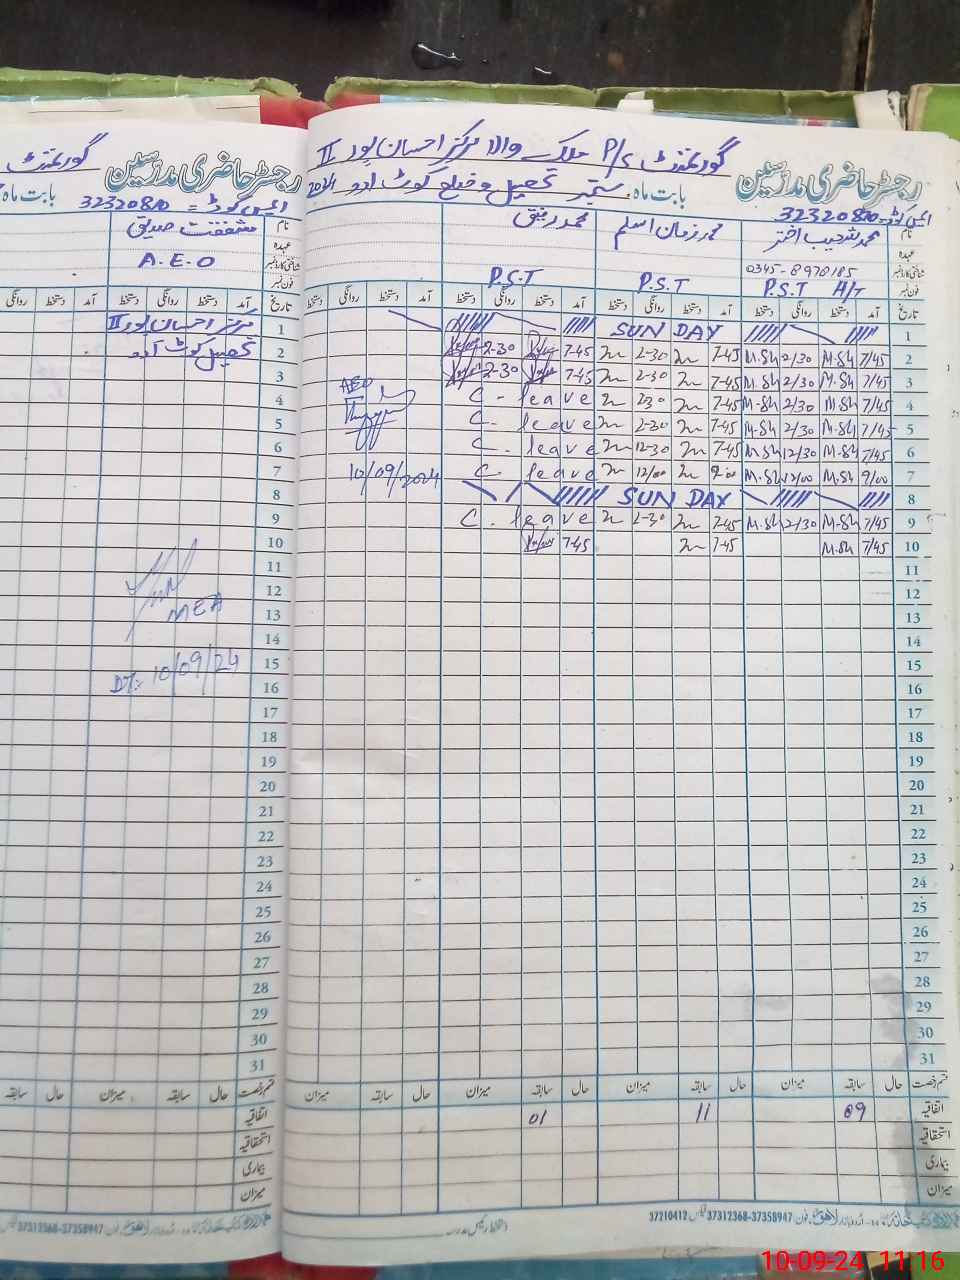 گورنمنٹ P/S ملانے والا مرکز احسان پور II
رجسٹر حاضری مدرسین
بابت ماہ ستمبر تحصیل و ضلع کوٹ ادو 2024
ایمس کوڈ 32320810
نام محمد شعیب اختر محمد زمان اسلم محمد رفیق
عہدہ
شناختی کارڈ نمبر 0345-8978185
فون نمبر P.S.T H/T P.S.T P.S.T
تاریخ آمد دستخط روانگی دستخط آمد دستخط روانگی دستخط آمد دستخط روانگی دستخط آمد دستخط روانگی دستخط
1 SUNDAY
2 7/45 M.Sh 2/30 M.Sh 7-45 2-30 7-45 2-30
3 7/45 M.Sh 2/30 M.Sh 7-45 2-30 7-45 2-30
4 7/45 M.Sh 2/30 M.Sh 7-45 2-30 C. leave
5 7/45 M.Sh 2/30 M.Sh 7-45 2-30 C. leave
6 7/45 M.Sh 12/30 M.Sh 7-45 12-30 C. leave
7 9/00 M.Sh 12/00 M.Sh 9-00 12/00 C. leave
8 SUNDAY
9 7/45 M.Sh 2/30 M.Sh 7-45 2-30 C. leave
10 7/45 M.Sh 7-45 7-45
AEO
10/09/2024
11
12
13
14
15
16
17
18
19
20
21
22
23
24
25
26
27
28
29
30
31
قسم رخصت حال سابقہ میزان حال سابقہ میزان حال سابقہ میزان حال سابقہ میزان
اتفاقیہ 09 11 01
استحقاقیہ
بیماری
میزان
37210412 فیکس 37312368-37358947
گورنمنٹ
رجسٹر حاضری مدرسین
بابت ماہ
ایمس کوڈ = 32320810
نام شفقت صدیق
عہدہ
شناختی کارڈ نمبر A.E.O
فون نمبر
تاریخ آمد دستخط روانگی دستخط آمد دستخط روانگی
1 مرکز احسان پور II
2 تحصیل کوٹ ادو
3
4
5
6
7
8
9
10
11
12
13 MEA
14
15 DT: 10/09/24
16
17
18
19
20
21
22
23
24
25
26
27
28
29
30
31
قسم رخصت حال سابقہ میزان حال سابقہ
اتفاقیہ
استحقاقیہ
بیماری
میزان
37312368-37358947
10-09-24 11:16